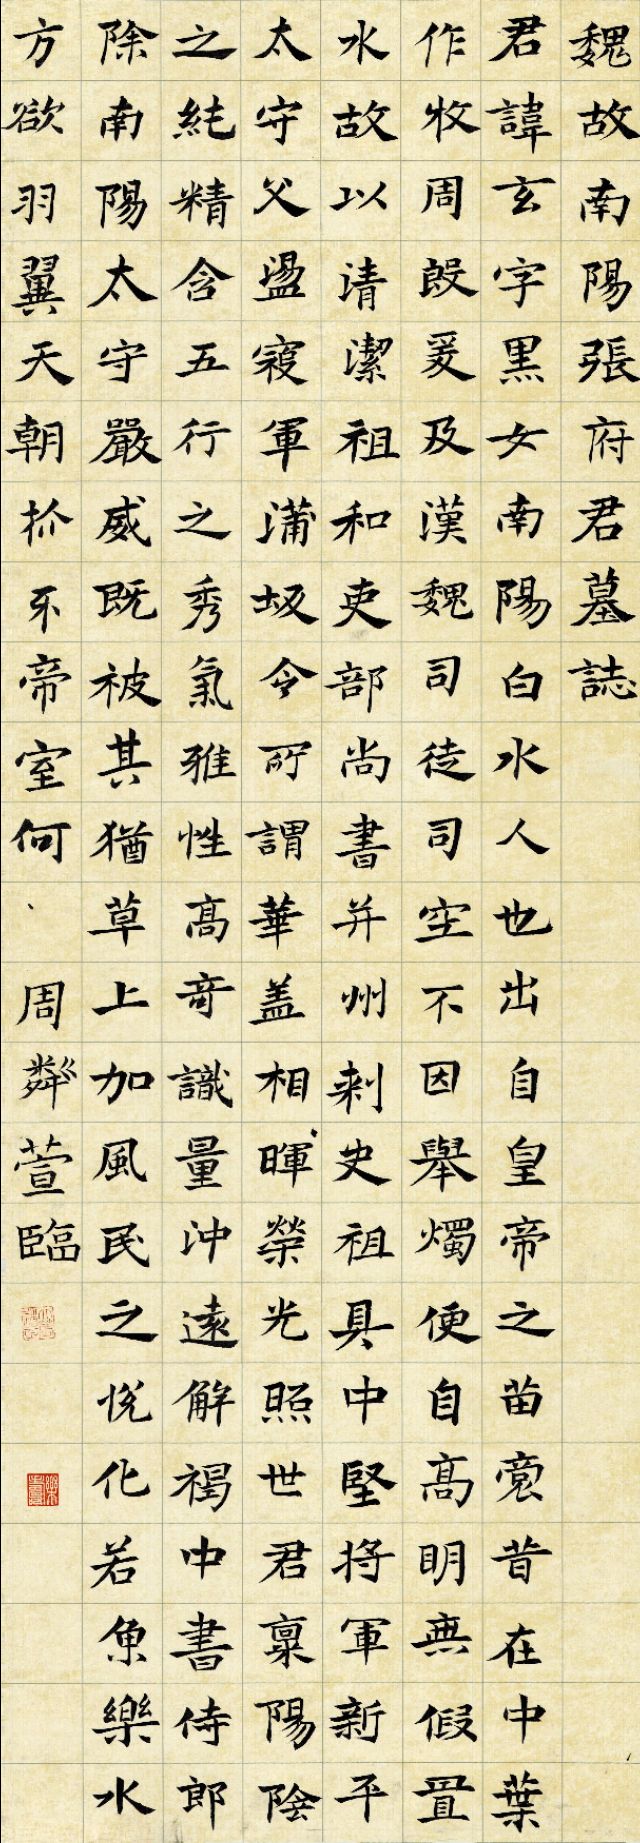 魏故南陽張府君墓誌
君諱玄字黑女南陽白水人也出自皇帝之苗裔昔在中葉
作牧周殷爰及漢魏司徒司空不因舉燭便自高明無假置
水故以清潔祖和吏部尚書并州刺史祖具中堅將軍新平
太守父盪寇軍蒲坂令所謂華蓋相暉榮光照世君稟陽陰
之純精含五行之秀氣雅性高奇識量沖遠解褐中書侍郎
除南陽太守嚴威既被其猶草上加風民之悅化若魚樂水
方欲羽翼天朝抓不帝室何、周粼萱臨